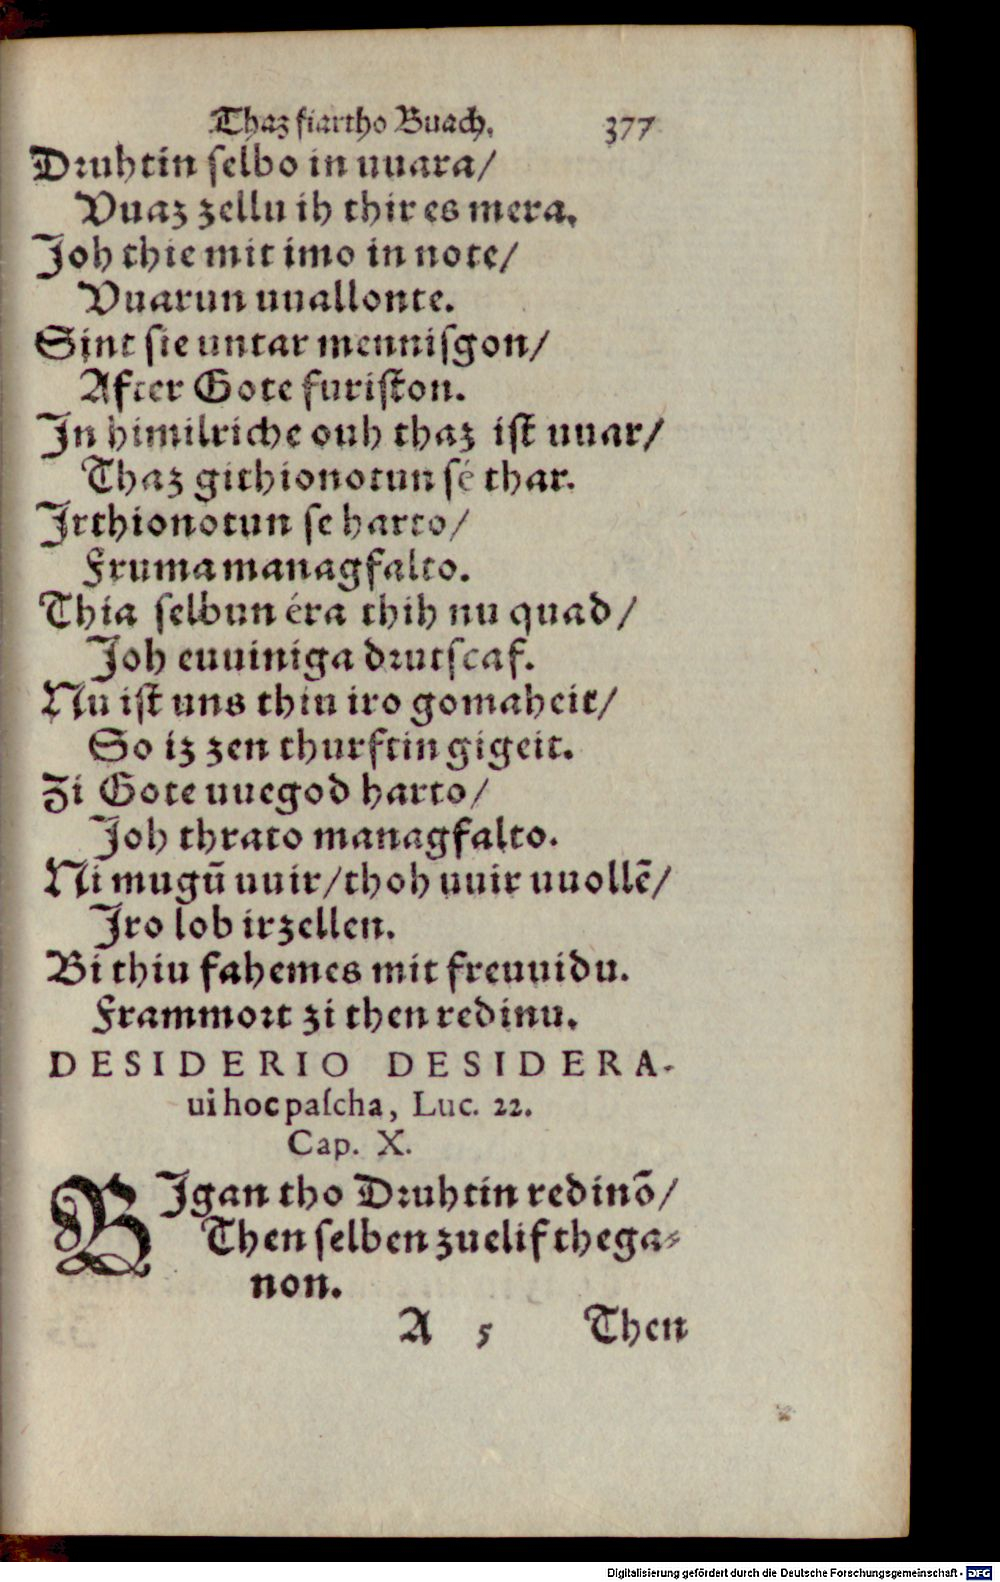 Thaz fiartho Buach. 377
Druhtin selbo in uuara/
Vuaz zellu ih thir es mera.
Joh thie mit imo in note/
Vuarun uuallonte.
Sint sie untar mennisgon/
After Gote furiston.
In himilriche ouh thaz ist uuar/
Thaz githionotun sé thar.
Irthionotun se harto/
Fruma managfalto.
Thia selbun éra thih nu quad/
Joh euuiniga drutscaf.
Nu ist uns thiu iro gomaheit/
So iz zen thurftin gigeit.
Zi Gote uuegod harto/
Joh thrato managfalto.
Ni mugū uuir/thoh uuir uuollē/
Iro lob irzellen.
Bi thiu fahemes mit freuuidu.
Frammort zi then redinu.
DESIDERIO DESIDERA-
ui hoc pascha, Luc. 22.
Cap. X.
BIgan tho Druhtin redinō/
Then selben zuelif thega-
non.
A 5 Then
Digitalisierung gefördert durch die Deutsche Forschungsgemeinschaft - DFG